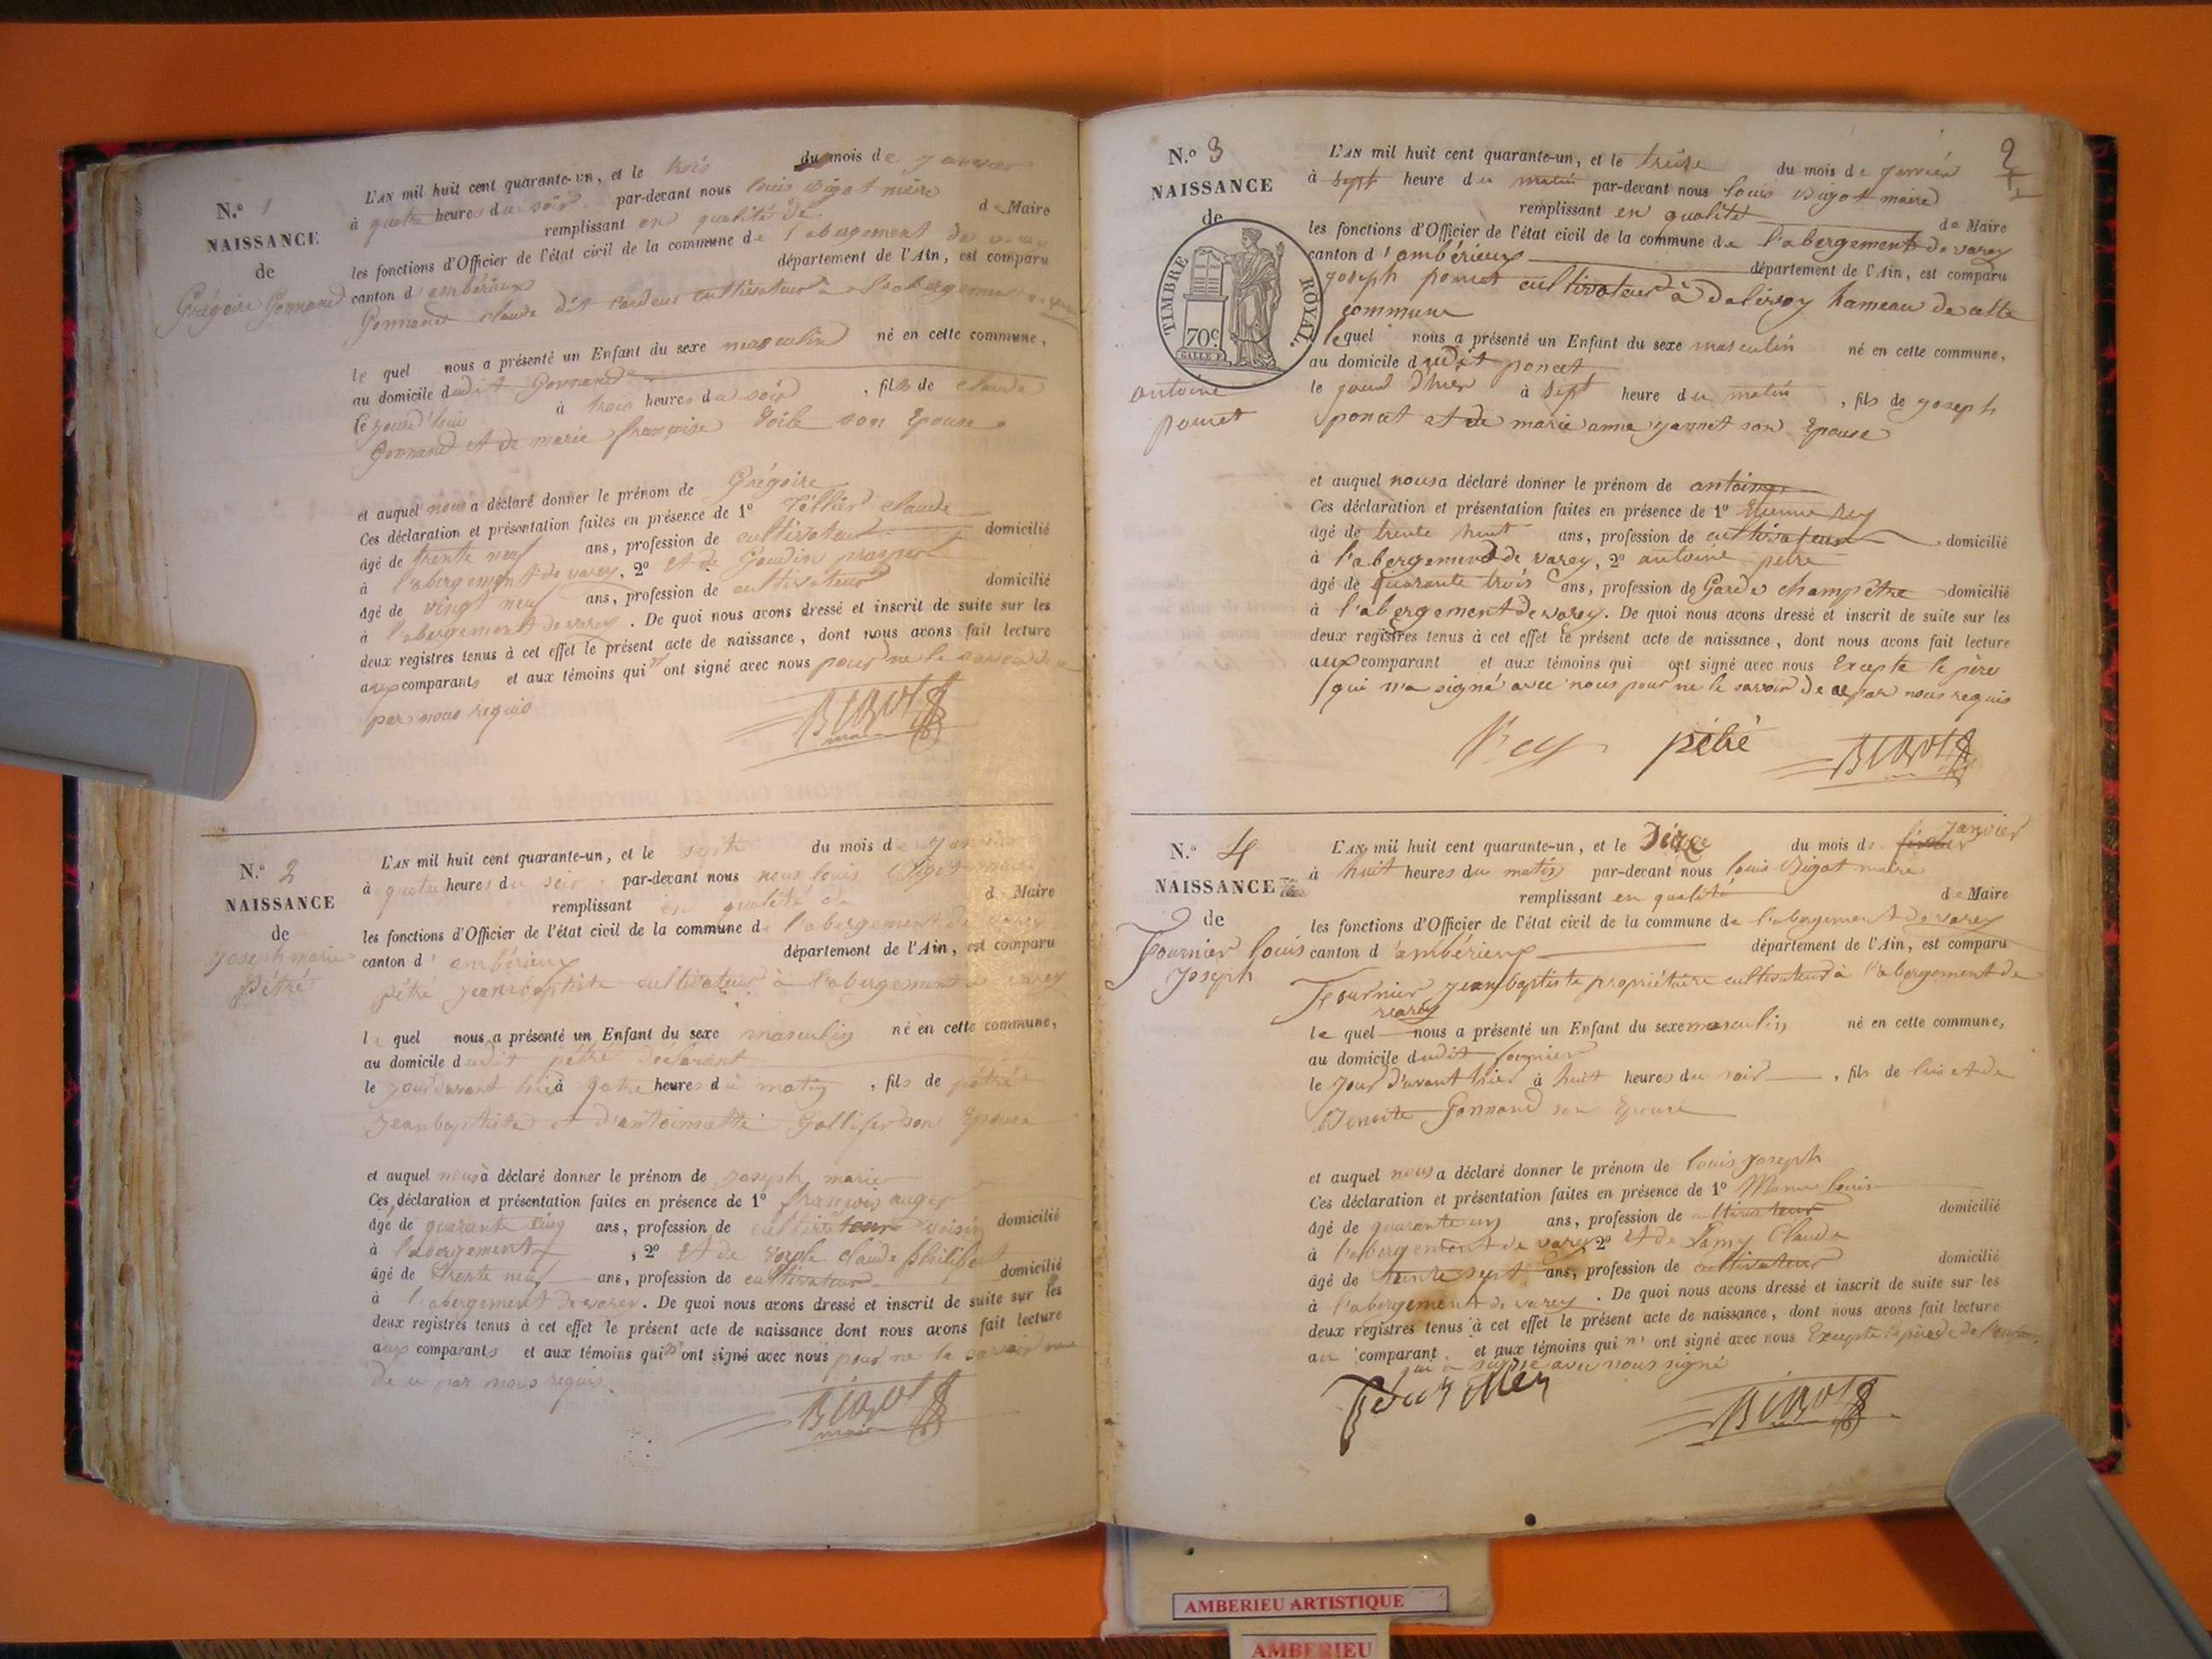 N.° 1
NAISSANCE
de
Grégoire Gonnand
L'AN mil huit cent quarante-un, et le trois du mois de janvier
à quatre heures du soir par-devant nous louis Bigot maire
remplissant en qualité de de Maire
les fonctions d'Officier de l'état civil de la commune de l'abergement de varey
canton d'ambérieux département de l'Ain, est comparu
Gonnand claude dit cardeur cultivateur à l'abergement de varey
le quel nous a présenté un Enfant du sexe masculin né en cette commune,
au domicile dudit Gonnand
le jourd'hui à trois heures du soir, fils de claude
Gonnand et de marie françoise son Epouse
et auquel nous a déclaré donner le prénom de Grégoire
Ces déclaration et présentation faites en présence de 1° claude
âgé de trente neuf ans, profession de cultivateur domicilié
à l'abergement de varey, 2° et de Gaudin prosper
âgé de vingt neuf ans, profession de cultivateur domicilié
à l'abergement de varey. De quoi nous avons dressé et inscrit de suite sur les
deux registres tenus à cet effet le présent acte de naissance, dont nous avons fait lecture
aux comparants et aux témoins qui n'ont signé avec nous pour ne le savoir de ce
par nous requis
BIGOT
maire
N.° 2
NAISSANCE
de
joseph marie
Pétré
L'AN mil huit cent quarante-un, et le sept du mois de janvier
à quatre heures du soir par-devant nous nous louis Bigot maire
remplissant en qualité de de Maire
les fonctions d'Officier de l'état civil de la commune de l'abergement de varey
canton d'ambérieux département de l'Ain, est comparu
pétré jeanbaptiste cultivateur à l'abergement de varey
le quel nous a présenté un Enfant du sexe masculin né en cette commune,
au domicile dudit pétré déclarant
le jour avant hier à quatre heures du matin, fils de pétré
jeanbaptiste et d'antoinette Gollifer son Epouse
et auquel nous à déclaré donner le prénom de joseph marie
Ces déclaration et présentation faites en présence de 1° françois auger
âgé de quarante cinq ans, profession de cultivateur voisin domicilié
à l'abergement, 2° et de claude philibert
âgé de trente neuf ans, profession de cultivateur domicilié
à l'abergement de varey. De quoi nous avons dressé et inscrit de suite sur les
deux registres tenus à cet effet le présent acte de naissance dont nous avons fait lecture
aux comparants et aux témoins qui n'ont signé avec nous pour ne le savoir
de ce par nous requis.
BIGOT
maire
2
N.° 3
NAISSANCE
de
TIMBRE ROYAL.
70c
antoine
poncet
L'AN mil huit cent quarante-un, et le treize du mois de janvier
à sept heure du matin par-devant nous louis Bigot maire
remplissant en qualité de Maire
les fonctions d'Officier de l'état civil de la commune de l'abergement de varey
canton d'ambérieux département de l'Ain, est comparu
joseph poncet cultivateur à Dalivoy hameau de cette
commune
lequel nous a présenté un Enfant du sexe masculin né en cette commune,
au domicile dudit poncet
le jour d'hier à sept heure du matin, fils de joseph
poncet et de marie anne jannet son Epouse
et auquel nous a déclaré donner le prénom de antoine
Ces déclaration et présentation faites en présence de 1° Etienne Rey
âgé de trente huit ans, profession de cultivateur domicilié
à l'abergement de varey, 2° antoine petré
âgé de quarante trois ans, profession de Garde champêtre domicilié
à l'abergement de varey. De quoi nous avons dressé et inscrit de suite sur les
deux registres tenus à cet effet le présent acte de naissance, dont nous avons fait lecture
aux comparant et aux témoins qui ont signé avec nous Excepte le père
qui n'a signé avec nous pour ne le savoir de ce par nous requis
Rey pétré BIGOT
N.° 4
NAISSANCE
de
Fournier louis
joseph
L'AN mil huit cent quarante-un, et le du mois de janvier
à huit heures du matin par-devant nous louis Bigot maire
remplissant en qualité de Maire
les fonctions d'Officier de l'état civil de la commune de l'abergement de varey
canton d'ambérieux département de l'Ain, est comparu
Fournier jean baptiste propriétaire cultivateur à l'abergement de
varey
le quel nous a présenté un Enfant du sexe masculin né en cette commune,
au domicile dudit fournier
le jour d'avant hier à huit heures du soir, fils de lui et de
Benoite Gonnand son Epouse
et auquel nous a déclaré donner le prénom de louis joseph
Ces déclaration et présentation faites en présence de 1° louis
âgé de quarante un ans, profession de cultivateur domicilié
à l'abergement de varey 2° et de Lamy Claude
âgé de trente sept ans, profession de cultivateur domicilié
à l'abergement de varey. De quoi nous avons dressé et inscrit de suite sur les
deux registres tenus à cet effet le présent acte de naissance, dont nous avons fait lecture
au comparant et aux témoins qui n'ont signé avec nous Excepte le père de l'enfant
qui a avec nous signé
BIGOT
AMBERIEU ARTISTIQUE
AMBERIEU